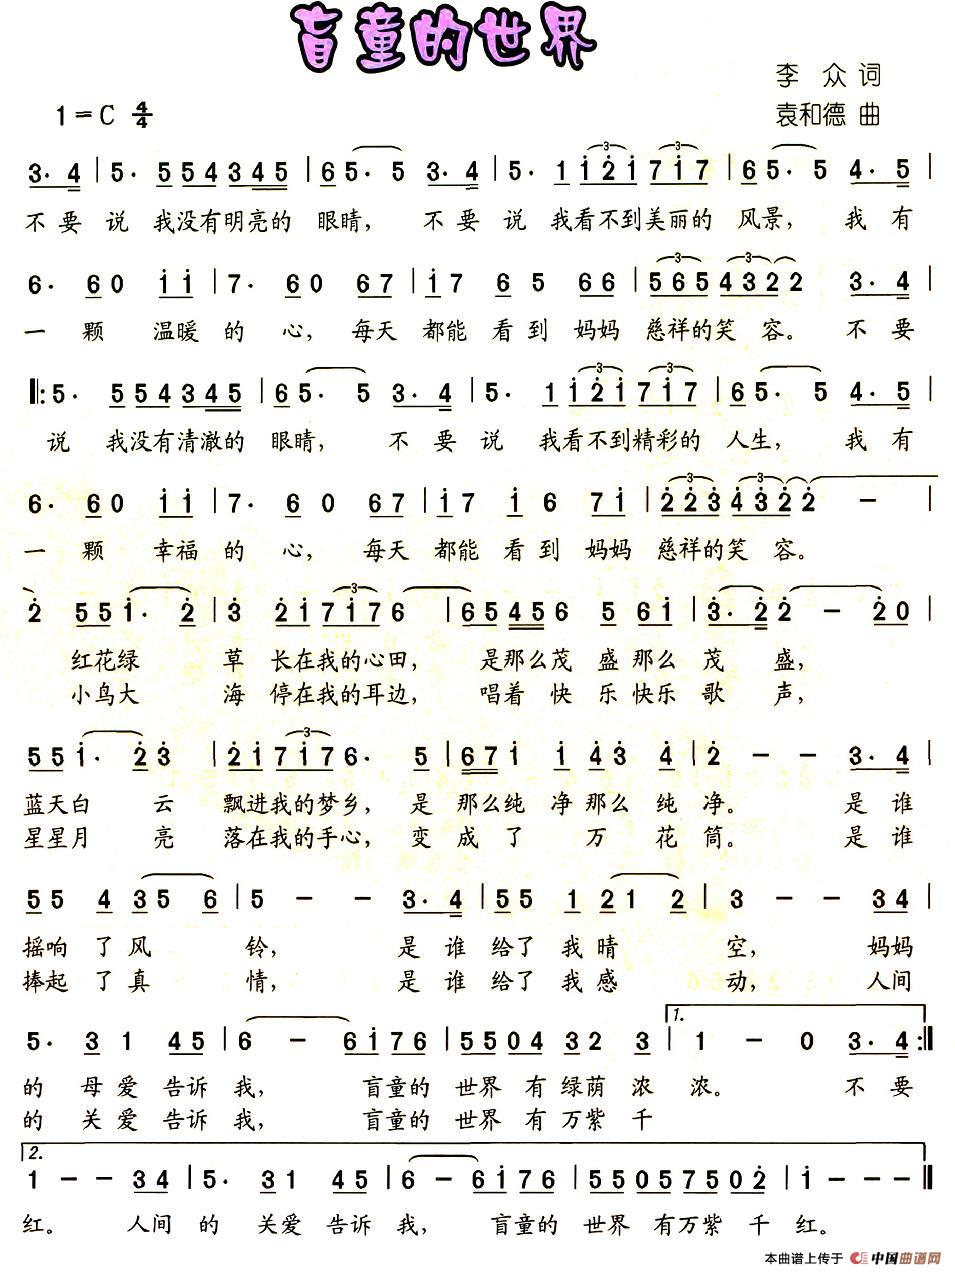 盲童的世界
李众词
1=C 4/4
袁和德曲
3. 4 | 5. 5 5 4 3 4 5 | 6 5. 5 3. 4 | 5. 1 i 2 i 7 i 7 | 6 5. 5 4. 5 |
不要说我没有明亮的眼睛，不要说我看不到美丽的风景，我有
6. 6 0 i i | 7. 6 0 6 7 | i 7 6 5 6 6 | 5 6 5 4 3 2 2 3. 4 |
一颗温暖的心，每天都能看到妈妈慈祥的笑容。不要
|: 5. 5 5 4 3 4 5 | 6 5. 5 3. 4 | 5. 1 i 2 i 7 i 7 | 6 5. 5 4. 5 |
说我没有清澈的眼睛，不要说我看不到精彩的人生，我有
6. 6 0 i i | 7. 6 0 6 7 | i 7 i 6 7 i | 2 2 3 4 3 2 2 - |
一颗幸福的心，每天都能看到妈妈慈祥的笑容。
2 5 5 i. 2 | 3 2 i 7 i 7 6 | 6 5 4 5 6 5 6 i | 3. 2 2 - 2 0 |
红花绿草长在我的心田，是那么茂盛那么茂盛，
小鸟大海停在我的耳边，唱着快乐快乐歌声，
5 5 i. 2 3 | 2 i 7 i 7 6. 5 | 6 7 i i 4 3 4 | 2 - - 3. 4 |
蓝天白云飘进我的梦乡，是那么纯净那么纯净。是谁
星星月亮落在我的手心，变成了万花筒。是谁
5 5 4 3 5 6 | 5 - - 3. 4 | 5 5 1 2 1 2 | 3 - - 3 4 |
摇响了风铃，是谁给了我晴空，妈妈
捧起了真情，是谁给了我感动，人间
1.
5. 3 1 4 5 | 6 - 6 i 7 6 | 5 5 0 4 3 2 3 | 1 - 0 3. 4 :|
的母爱告诉我，盲童的世界有绿荫浓浓。不要
的关爱告诉我，盲童的世界有万紫千
2.
1 - - 3 4 | 5. 3 1 4 5 | 6 - 6 i 7 6 | 5 5 0 5 7 5 0 2 | i - - - ||
红。人间的关爱告诉我，盲童的世界有万紫千红。
本曲谱上传于 中国曲谱网